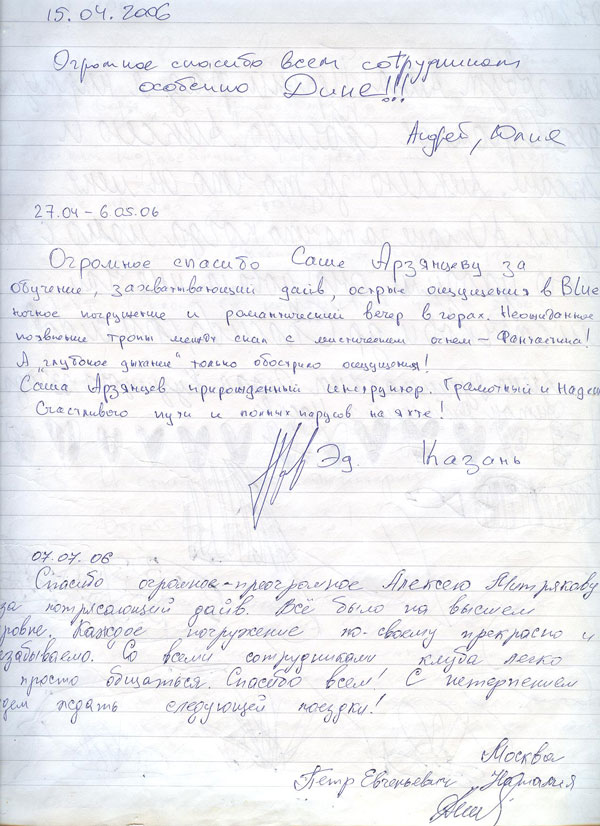 15.04.2006
Огромное спасибо всем сотрудникам
особенно Дине!!!
Андрей, Юлия
27.04 – 6.05.06
Огромное спасибо Саше Арзянцеву за
обучение, захватывающий дайв, острые ощущения в Blue
ночное погружение и романтический вечер в горах. Неожиданное
появление тропы между скал с мистическим огнем – Фантастика!
А „глубокое дыхание“ только обострило ощущения!
Саша Арзянцев прирожденный инструктор. Грамотный и Надеж
Счастливого пути и полных парусов на яхте!
Эд. Казань
07.07.06
Спасибо огромное-преогромное Алексею Митрякову
за потрясающий дайв. Всё было на высшем
ровне. Каждое погружение по-своему прекрасно и
езабываемо. Со всеми сотрудниками клуба легко
просто общаться. Спасибо всем! С нетерпением
дем ждать следующей поездки!
Москва
Петр Евгеньевич Наталия